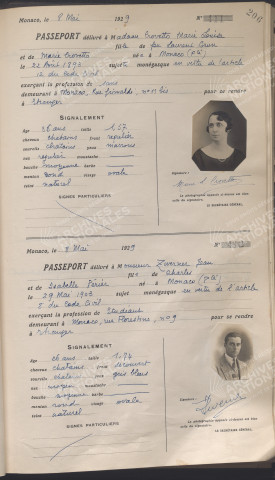 206
Monaco, le 8 Mai 1929 N°
PASSEPORT délivré à Madame Crovetto Marie Louise
fille de feu Laurent Crovetto
et de Marie Crovetto née à Monaco (Pté)
le 22 Août 1893 sujette monégasque en vertu de l'article
12 du Code Civil
exerçant la profession de
demeurant à Monaco, Rue Grimaldi, n° 11 bis pour se rendre
à l'étranger
SIGNALEMENT
âge 36 ans taille 1.57
cheveux chatains front régulier
sourcils chatains yeux marrons
nez régulier moustache
bouche moyenne barbe
menton rond visage ovale
teint naturel
SIGNES PARTICULIERS
Signature :
La photographie apposée ci-dessus est bien
celle du signataire.
LE SECRÉTAIRE GÉNÉRAL,
Monaco, le 8 Mai 1929 N°
PASSEPORT délivré à Monsieur Jean
fils de Charles
et de Isabelle né à Monaco (Pté)
le 29 Mai 1903 sujet monégasque en vertu de l'article
du Code Civil
exerçant la profession de Etudiant
demeurant à Monaco, rue Florestine, n° 9 pour se rendre
à l'étranger
SIGNALEMENT
âge 26 ans taille 1.74
cheveux chatains front découvert
sourcils chatains yeux gris bleus
nez moyen moustache
bouche moyenne barbe
menton rond visage ovale
teint naturel
SIGNES PARTICULIERS
Signature :
La photographie apposée ci-dessus est bien
celle du signataire.
LE SECRÉTAIRE GÉNÉRAL,